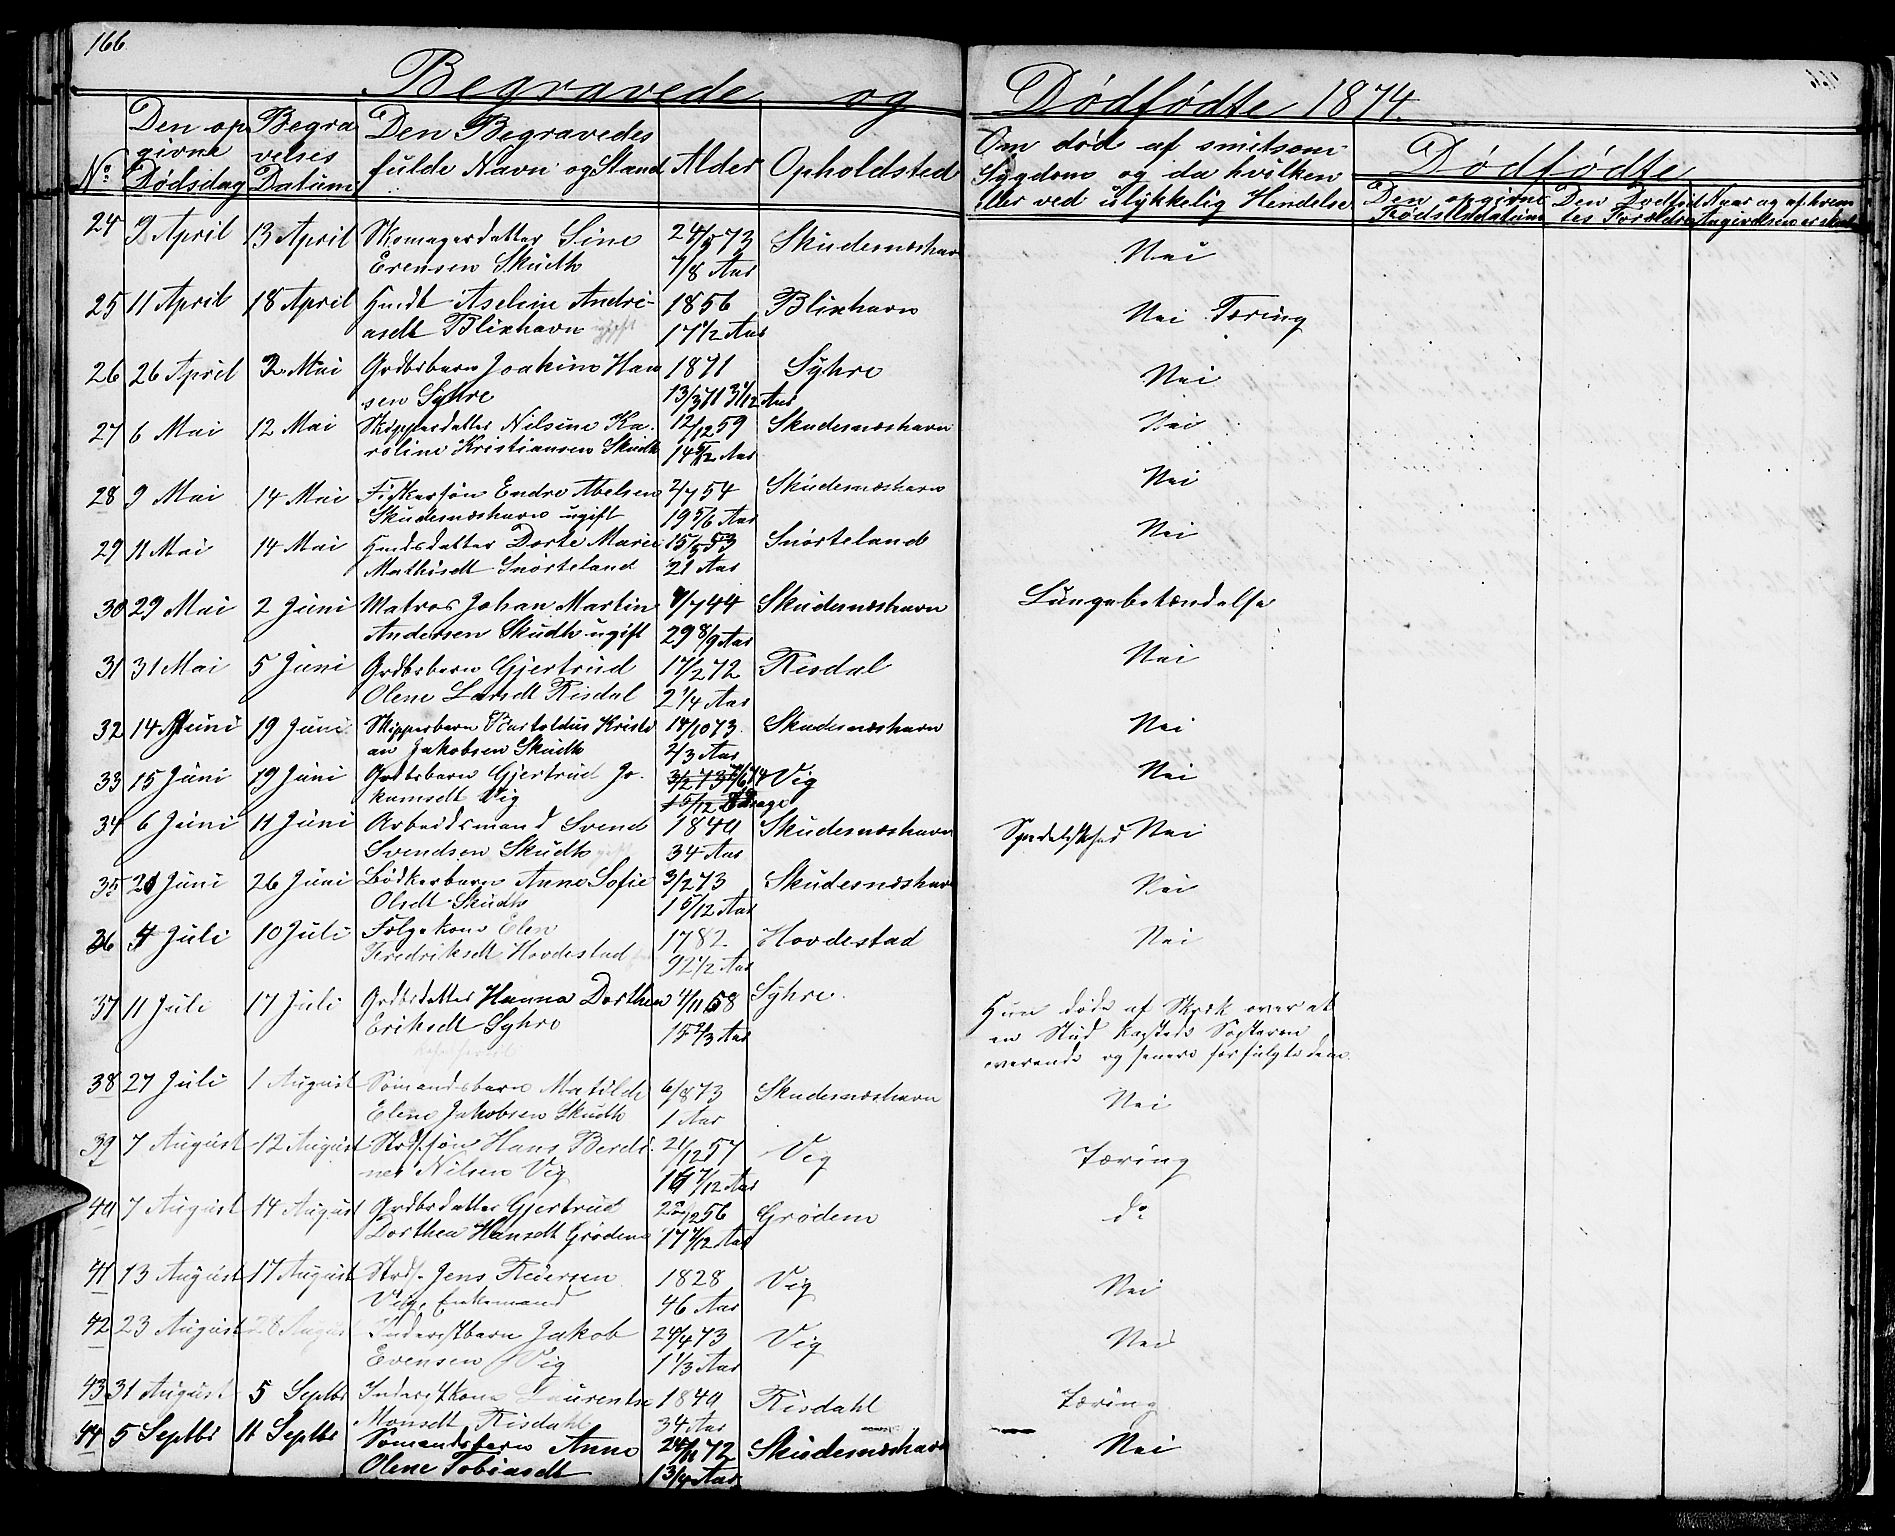 166
Begravede og Dødfødte 1874.
No. Den opgivne Dødsdag Begravelses Datum Den Begravedes fulde Navn og Stand Alder Opholdsted Om død af smitsom Sygdom og da hvilken eller ved ulykkelig Hendelse Dødfødte
Den opgivne Fødselsdatum Den Dødfødtes Forældre Hvor og af hvem Angivelsen er skeet
24 2 April 13 April Skomagerdatter Sine 24/5 73 Skudernæshavn Nei
Erensen Skudh 7/8 Aar
25 11 April 18 April Huusdt Aseline Andri- 1856 Blixhavn Nei Tæring
asdt Blixhavn ugift 17 1/2 Aar
26 26 April 2 Mai Grdbsbarn Joakim Han 1871 Syhre Nei
sen Syhre 13/3 71 3 1/12 Aar
27 6 Mai 12 Mai Skipperdatter Nilsine Ka- 12/12 59 Skudernæshavn Nei
roline Kristiansen Skudh 14 5/12 Aar
28 9 Mai 14 Mai Fiskersøn Endre Abelsen 2/7 54 Skudesnæshavn Nei
Skudesnæshavn ugift 19 5/6 Aar
29 11 Mai 14 Mai Husdatter Dorte Marie 15/5 53 Snørteland Nei
Mathisdt Snørteland 21 Aar
30 29 Mai 2 Juni Matros Johan Martin 9/7 44 Skudernæshavn Lungebetændelse
Andersen Skudh ugift 29 8/9 Aar
31 31 Mai 5 Juni Grdbsbarn Gjertrud 17/2 72 Risdal Nei
Olene Larsdt Risdal 2 1/4 Aar
32 14 Juni 19 Juni Skipperbarn Bartoldus Kristi 14/10 73 Skudernæshavn Nei
an Jakobsen Skudh 2/3 Aar
33 15 Juni 19 Juni Grdbsbarn Gjertrud Jo- Vig Nei
kumsdt Vig
34 6 Juni 11 Juni Arbeidsmand Svend 1840 Skudesnæshavn Spedalskhed Nei
Svendsen Skudh gift 34 Aar
35 21 Juni 26 Juni Bødkerbarn Anne Sofie 3/2 73 Skudesnæshavn Nei
Olsdt Skudh 1 5/12 Aar
36 4 Juli 10 Juli Folgekone Elen 1782 Hovdestad Nei
Fredriksdt Hovdestad 92 1/2 Aar
37 11 Juli 17 Juli Grdbsdatter Hanna Dorthea 4/11 58 Syhre Hun døde af Skræk over at
Eriksdt Syhre 15 2/3 Aar en Stud kastede Søsteren
overende og senere forfulgte dem.
38 27 Juli 1 August Sømandsbarn Matilde 6/8 73 Skudesnæshavn Nei
Elene Jakobsen Skudh 1 Aar
39 7 August 12 August Strdsf. søn Hans Berdi- 21/12 57 Vig Tæring
nes Nilsen Vig 16 7/12 Aar
40 7 August 14 August Grdbsdatter Gjertrud 22/12 56 Grødem do
Dorthea Hansdt Grødem 17 7/12 Aar
41 13 August 17 August Strdsf. Jens Pedersen 1828 Vig Nei
Vig, Enkemand 46 Aar
42 23 August 28 August Inderstbarn Jakob 24/4 73 Vig Nei
Evensen Vig 1 1/3 Aar
43 31 August 5 Septbr Inderstkone Laurentse 1840 Risdahl Tæring
Monsdt Risdahl 34 Aar
44 5 Septbr 11 Septbr Sømandsbarn Anne 24/11 72 Skudesnæshavn Nei
Olene Tobiasdt 1 3/4 Aar